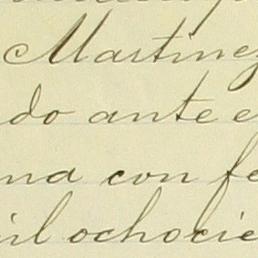 Martinez
do ante e
na con fe
il ochocie